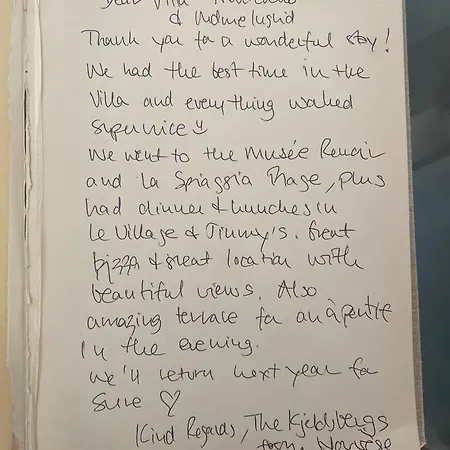 Dear Villa
&
Thank you for a wonderful stay!
We had the best time in the
Villa and everything worked
supernice
We went to the Musée Renoir
and la Spiaggia Plage, plus
had dinner & lunches in
Le Village & Jimmy's. Great
pizza & great location with
beautiful views. Also
amazing terrace for an àperitif
in the evening.
We'll return next year for
sure ♡
Kind Regards, The Kjeldsbergs
from